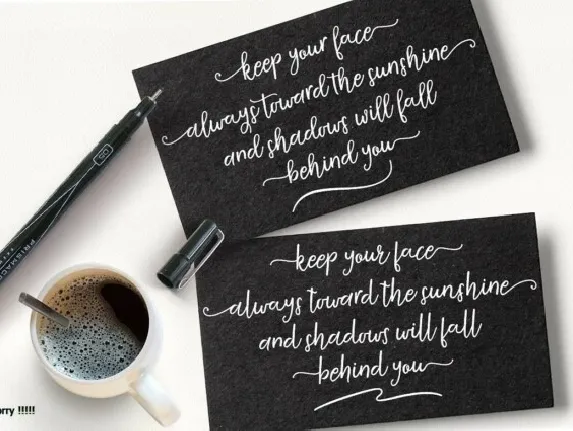 keep your face
always toward the sunshine
and shadows will fall
behind you
keep your face
always toward the sunshine
and shadows will fall
behind you
05
PRISMAC
rry !!!!!